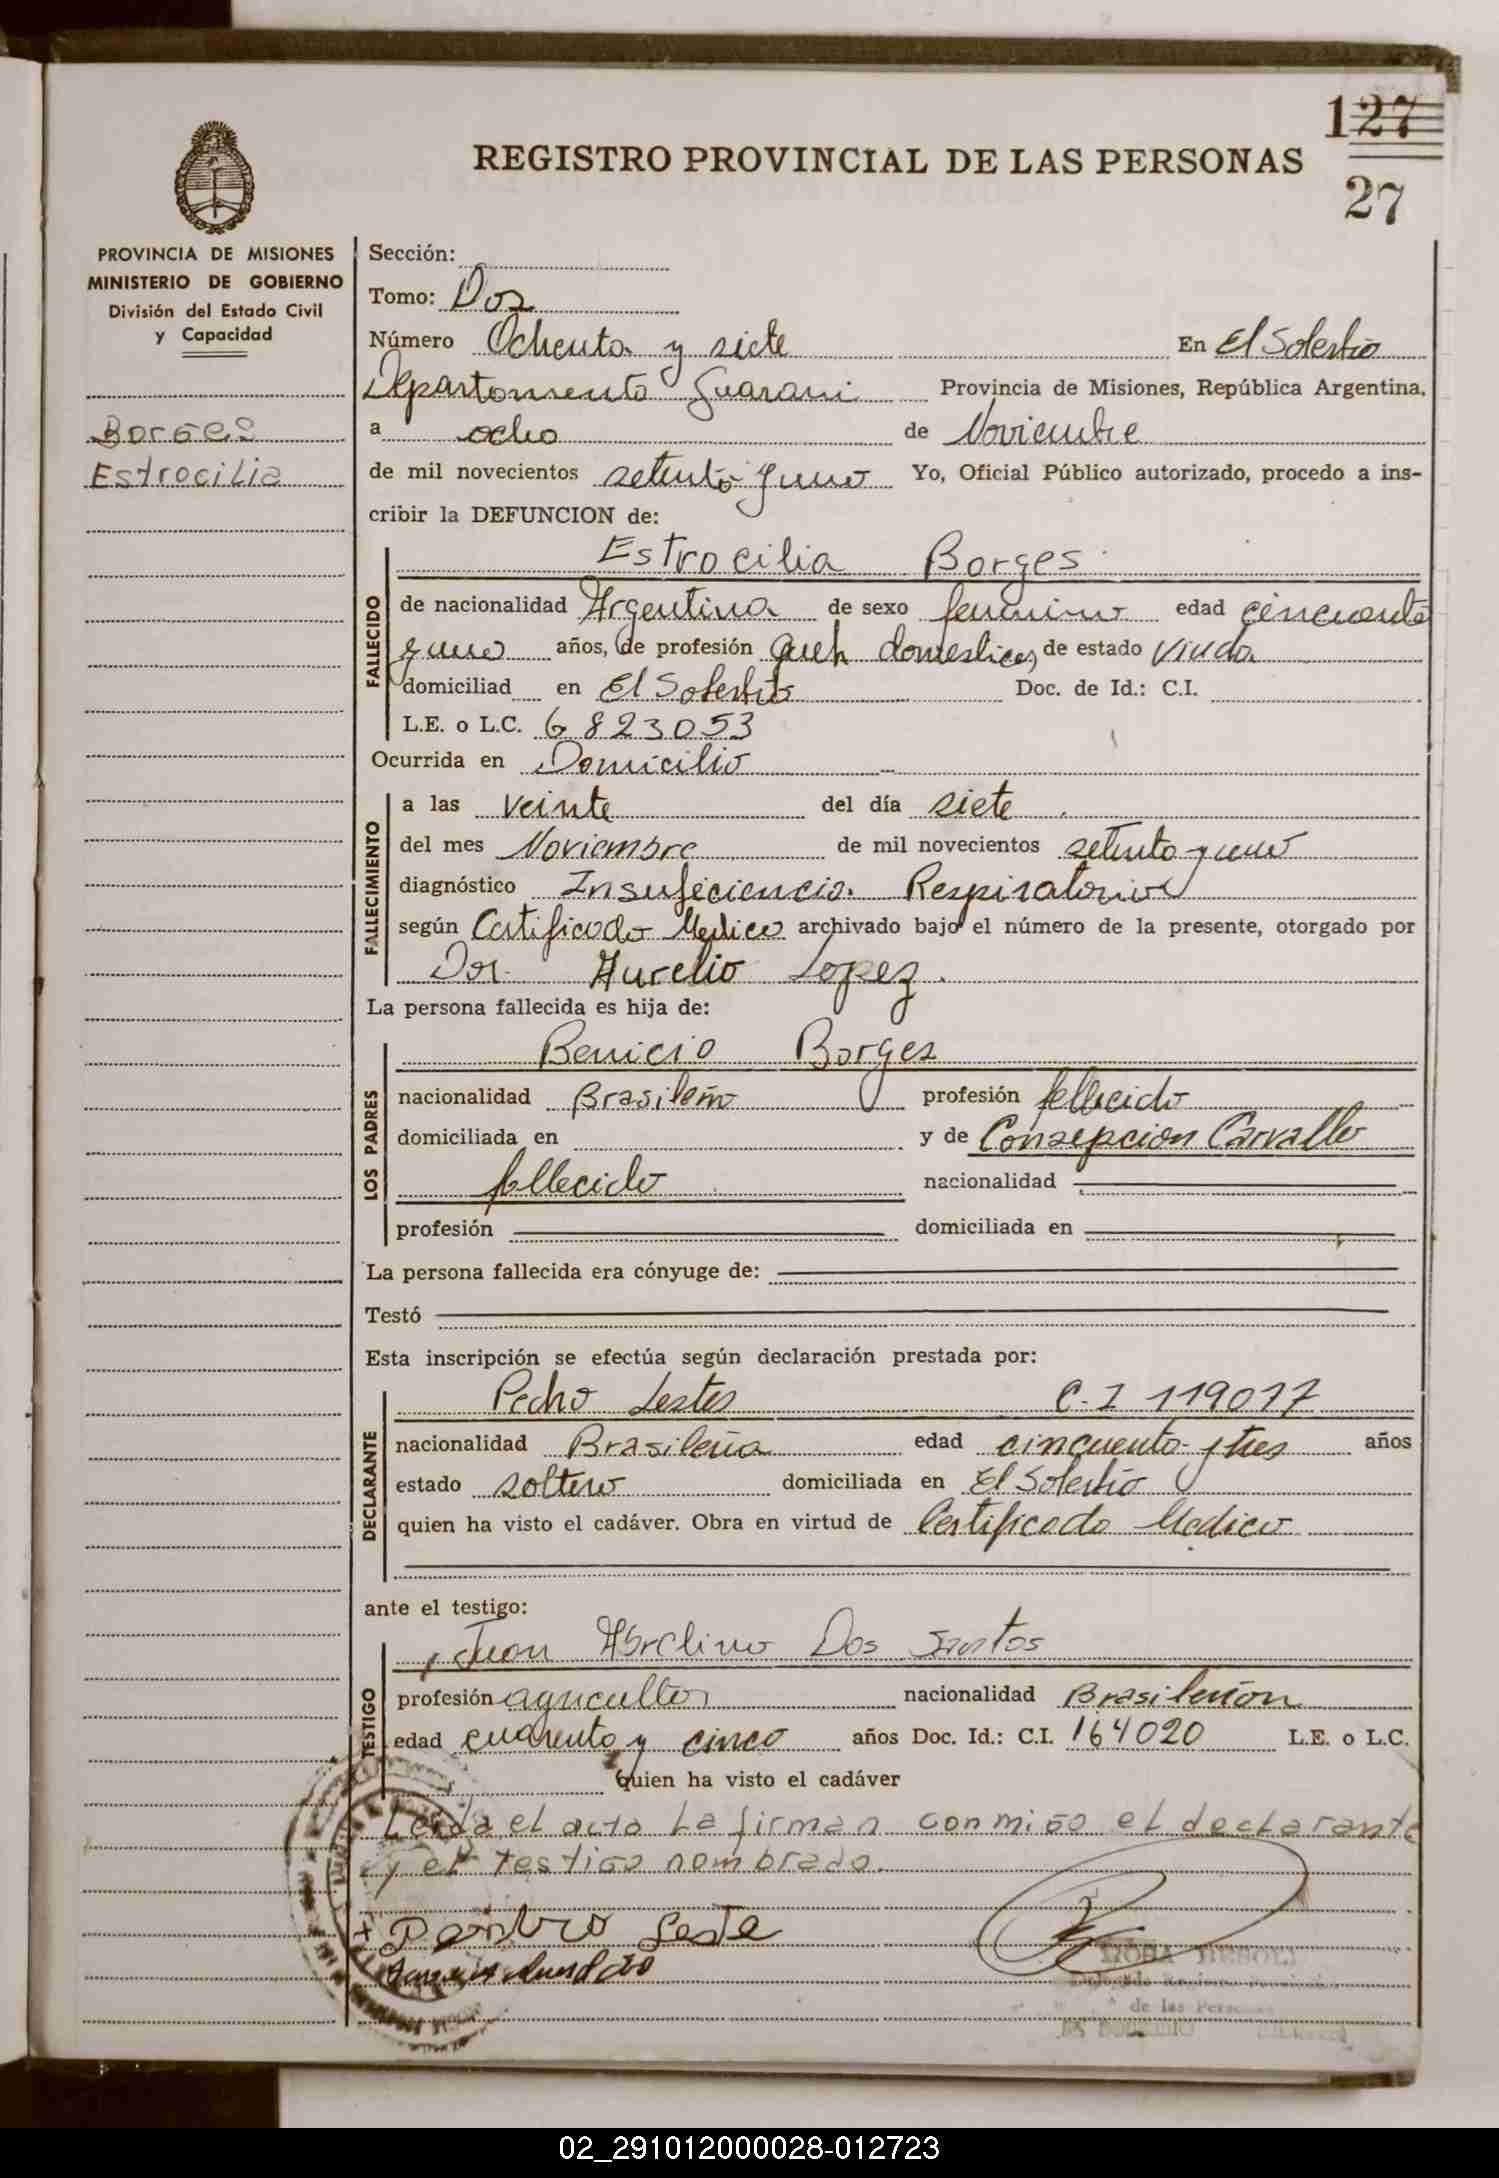 127
REGISTRO PROVINCIAL DE LAS PERSONAS
27
PROVINCIA DE MISIONES
MINISTERIO DE GOBIERNO
División del Estado Civil
y Capacidad
Borges
Estrocilia
Sección:
Tomo: Dos
Número Ochenta y siete En El Soberbio
Departamento Guarani Provincia de Misiones, República Argentina,
a ocho de Noviembre
de mil novecientos setenta y uno Yo, Oficial Público autorizado, procedo a ins-
cribir la DEFUNCION de:
FALLECIDO
Estrocilia Borges
de nacionalidad Argentina de sexo femenino edad cincuenta
y uno años, de profesión Queh domesticos de estado Viuda
domiciliad en El Soberbio Doc. de Id.: C.I.
L.E. o L.C. 6823053
Ocurrida en Domicilio
FALLECIMIENTO
a las veinte del día siete.
del mes Noviembre de mil novecientos setenta y uno
diagnóstico Insuficiencia Respiratoria
según Certificado Medico archivado bajo el número de la presente, otorgado por
Dor. Aurelio Lopez.
La persona fallecida es hija de:
LOS PADRES
Benicio Borges
nacionalidad Brasileño profesión fallecido
domiciliada en y de Consepcion Carvallo
fallecido nacionalidad
profesión domiciliada en
La persona fallecida era cónyuge de:
Testó
Esta inscripción se efectúa según declaración prestada por:
DECLARANTE
Pedro Lestes C.I 119017
nacionalidad Brasileña edad cincuenta y tres años
estado soltero domiciliada en El Soberbio
quien ha visto el cadáver. Obra en virtud de Certificado Medico
ante el testigo:
TESTIGO
Juan Abelino Dos Santos
profesión agricultor nacionalidad Brasileña
edad cuarenta y cinco años Doc. Id.: C.I. 164020 L.E. o L.C.
Quien ha visto el cadáver
Leida el acta La firman conmigo el declarante
y el testigo nombrado.
de las Personas
02_291012000028-012723